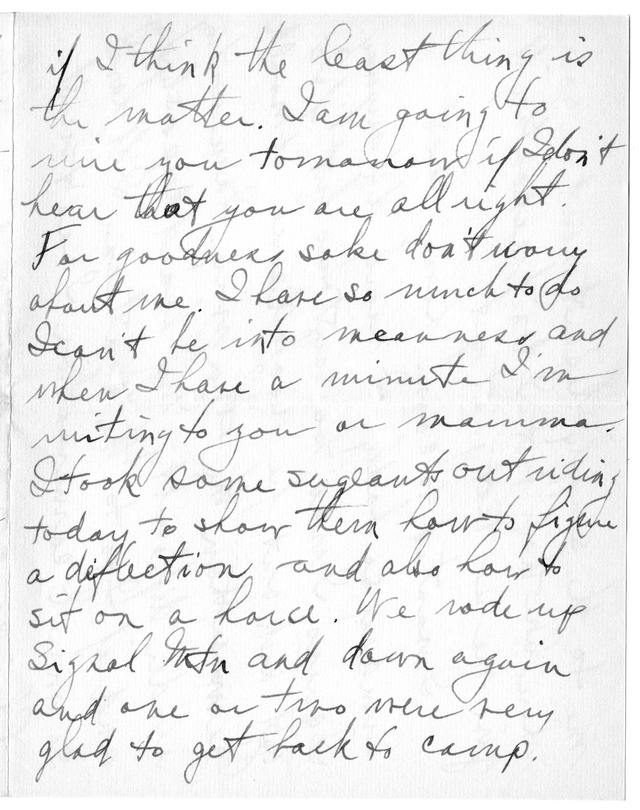 if I think the least thing is
the matter. I am going to
wire you tomorrow if I don't
hear that you are all right.
For goodness sake don't worry
about me. I have so much to do
I can't be into meanness and
when I have a minute I'm
writing to you or mamma.
I took some sugeants out riding
today to show them how to figure
a diflection and also how to
sit on a horce. We rode up
Signal Mtn and down again
and one or two were very
glad to get back to camp.